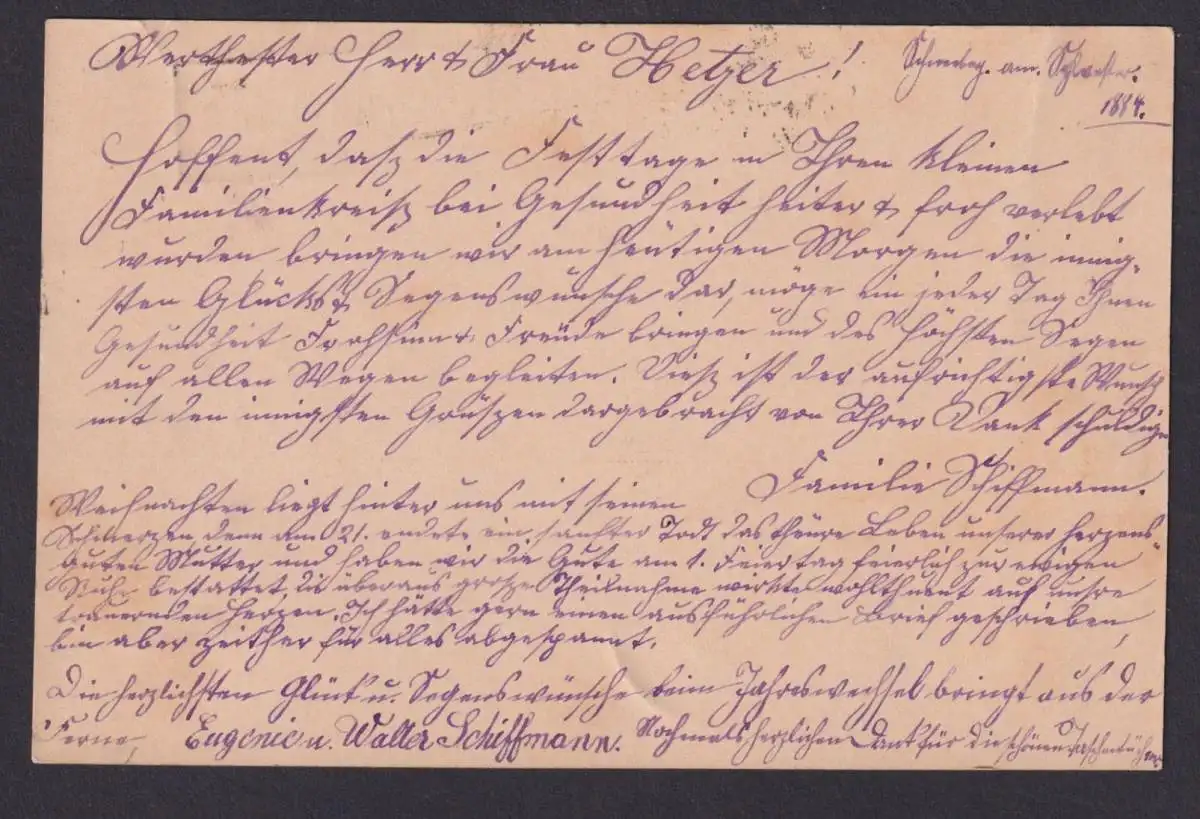 Werthester Herr & Frau Hetzer!
Schneebg. am. Sylvester.
1884.
Hoffent, dasz die Festtage in Ihren kleinen
Familienkreisz bei Gesundheit heiter & froh verlebt
wurden bringen wir am heutigen Morgen die innig-
sten Glücks & Segenswünsche dar, möge ein jeder Tag Ihnen
Gesundheit Frohsinn & Freude bringen und des Höchsten Segen
auf allen Wegen begleiten. Diesz ist der aufrichtigste Wunsch
mit den innigsten Grüszen dargebracht von Ihrer Dank schuldigen
Familie Schiffmann.
Weihnachten liegt hinter uns mit seinen
Schmerzen, denn am 21. endete ein sanfter Todt das theure Leben unserer herzens-
guten Mutter und haben wir die Gute am 1. Feiertag feierlich zur ewigen
Ruhe bestattet, die überaus grosze Theilnahme wirkte wohlthuent auf unsre
trauernden Herzen. Ich hätte gern einen ausführlichen Brief geschrieben,
bin aber zeither für alles abgespannt.
Die herzlichsten Glück u. Segenswünsche beim Jahreswechsel bringt aus der
Ferne, Eugenie u. Walter Schiffmann. Nochmals herzlichen Dank für die schönen Taschentücher